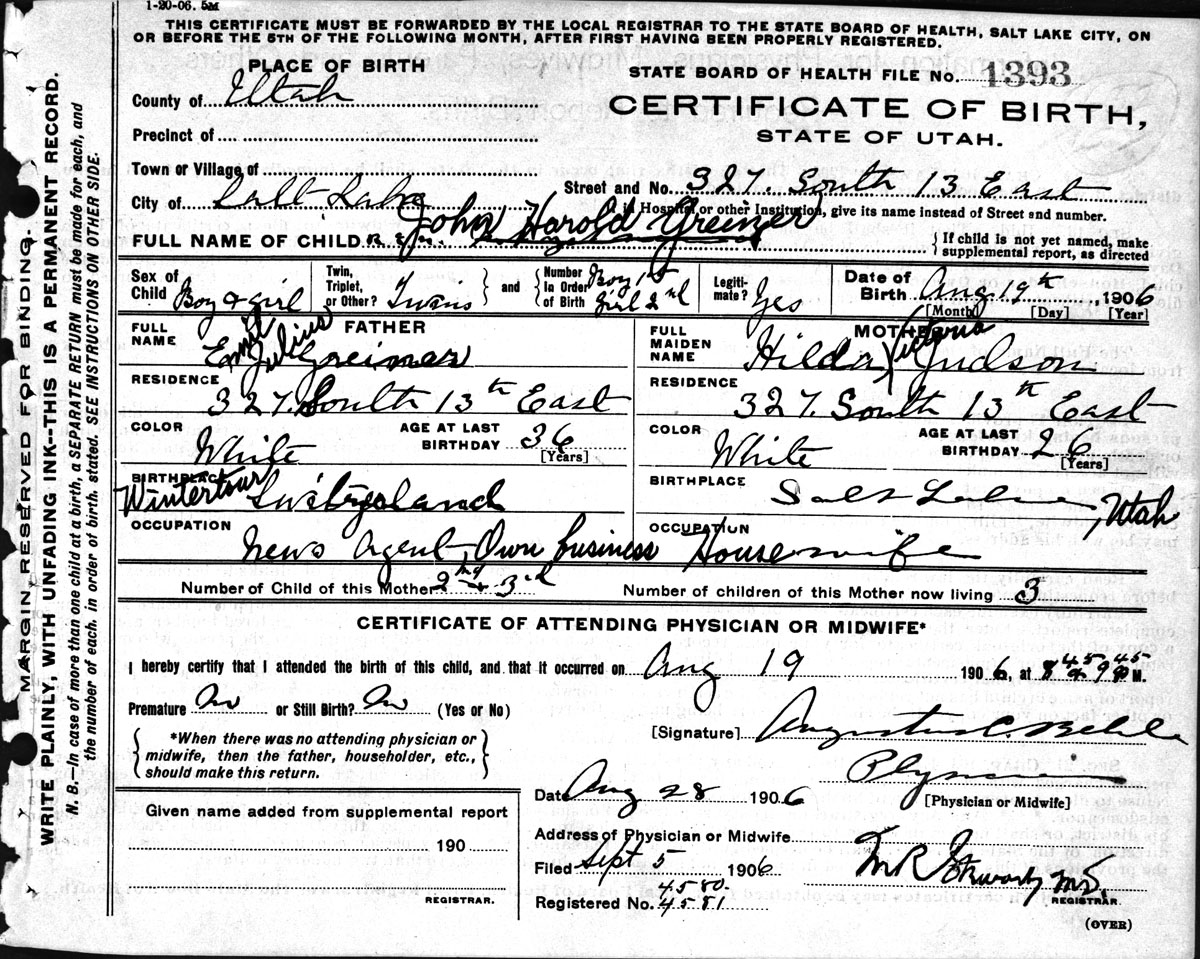 1-20-06. 5M
THIS CERTIFICATE MUST BE FORWARDED BY THE LOCAL REGISTRAR TO THE STATE BOARD OF HEALTH, SALT LAKE CITY, ON
OR BEFORE THE 5TH OF THE FOLLOWING MONTH, AFTER FIRST HAVING BEEN PROPERLY REGISTERED.
MARGIN RESERVED FOR BINDING.
WRITE PLAINLY, WITH UNFADING INK--THIS IS A PERMANENT RECORD.
N. B.—In case of more than one child at a birth, a SEPARATE RETURN must be made for each, and
the number of each, in order of birth, stated. SEE INSTRUCTIONS ON OTHER SIDE.
PLACE OF BIRTH
STATE BOARD OF HEALTH FILE No. 1393
County of Utah
CERTIFICATE OF BIRTH,
Precinct of
STATE OF UTAH.
Town or Village of
Street and No. 327. South 13 East
City of Salt Lake
in Hospital or other Institution, give its name instead of Street and number.
FULL NAME OF CHILD John Harold Greiner
If child is not yet named, make
supplemental report, as directed
Sex of Child Boy & girl
Twin, Triplet, or Other? Twins
and
Number In Order of Birth Boy 1st Girl 2nd
Legiti-mate? Yes
Date of Birth Aug. 19th, 1906
[Month] [Day] [Year]
FATHER
FULL NAME Emil Julius Greiner
RESIDENCE
327. South 13th East
COLOR White
AGE AT LAST BIRTHDAY 36
[Years]
BIRTHPLACE
Wintertour Switzerland
OCCUPATION
News Agent, Own business
MOTHER
FULL MAIDEN NAME Hilda Victoria Judson
RESIDENCE
327. South 13th East
COLOR White
AGE AT LAST BIRTHDAY 26
[Years]
BIRTHPLACE
Salt Lake, Utah
OCCUPATION
Housewife
Number of Child of this Mother 2nd & 3rd
Number of children of this Mother now living 3
CERTIFICATE OF ATTENDING PHYSICIAN OR MIDWIFE*
I hereby certify that I attended the birth of this child, and that it occurred on Aug 19 1906, at 8 45 & 9 45 M.
Premature No or Still Birth? No (Yes or No)
*When there was no attending physician or
midwife, then the father, householder, etc.,
should make this return.
[Signature] Augustus C. Behle
Physician
[Physician or Midwife]
Date Aug 28 1906
Given name added from supplemental report
190
REGISTRAR.
Address of Physician or Midwife
Filed Sept 5 1906
Registered No. 4580. 4581
M.D.
REGISTRAR.
(OVER)